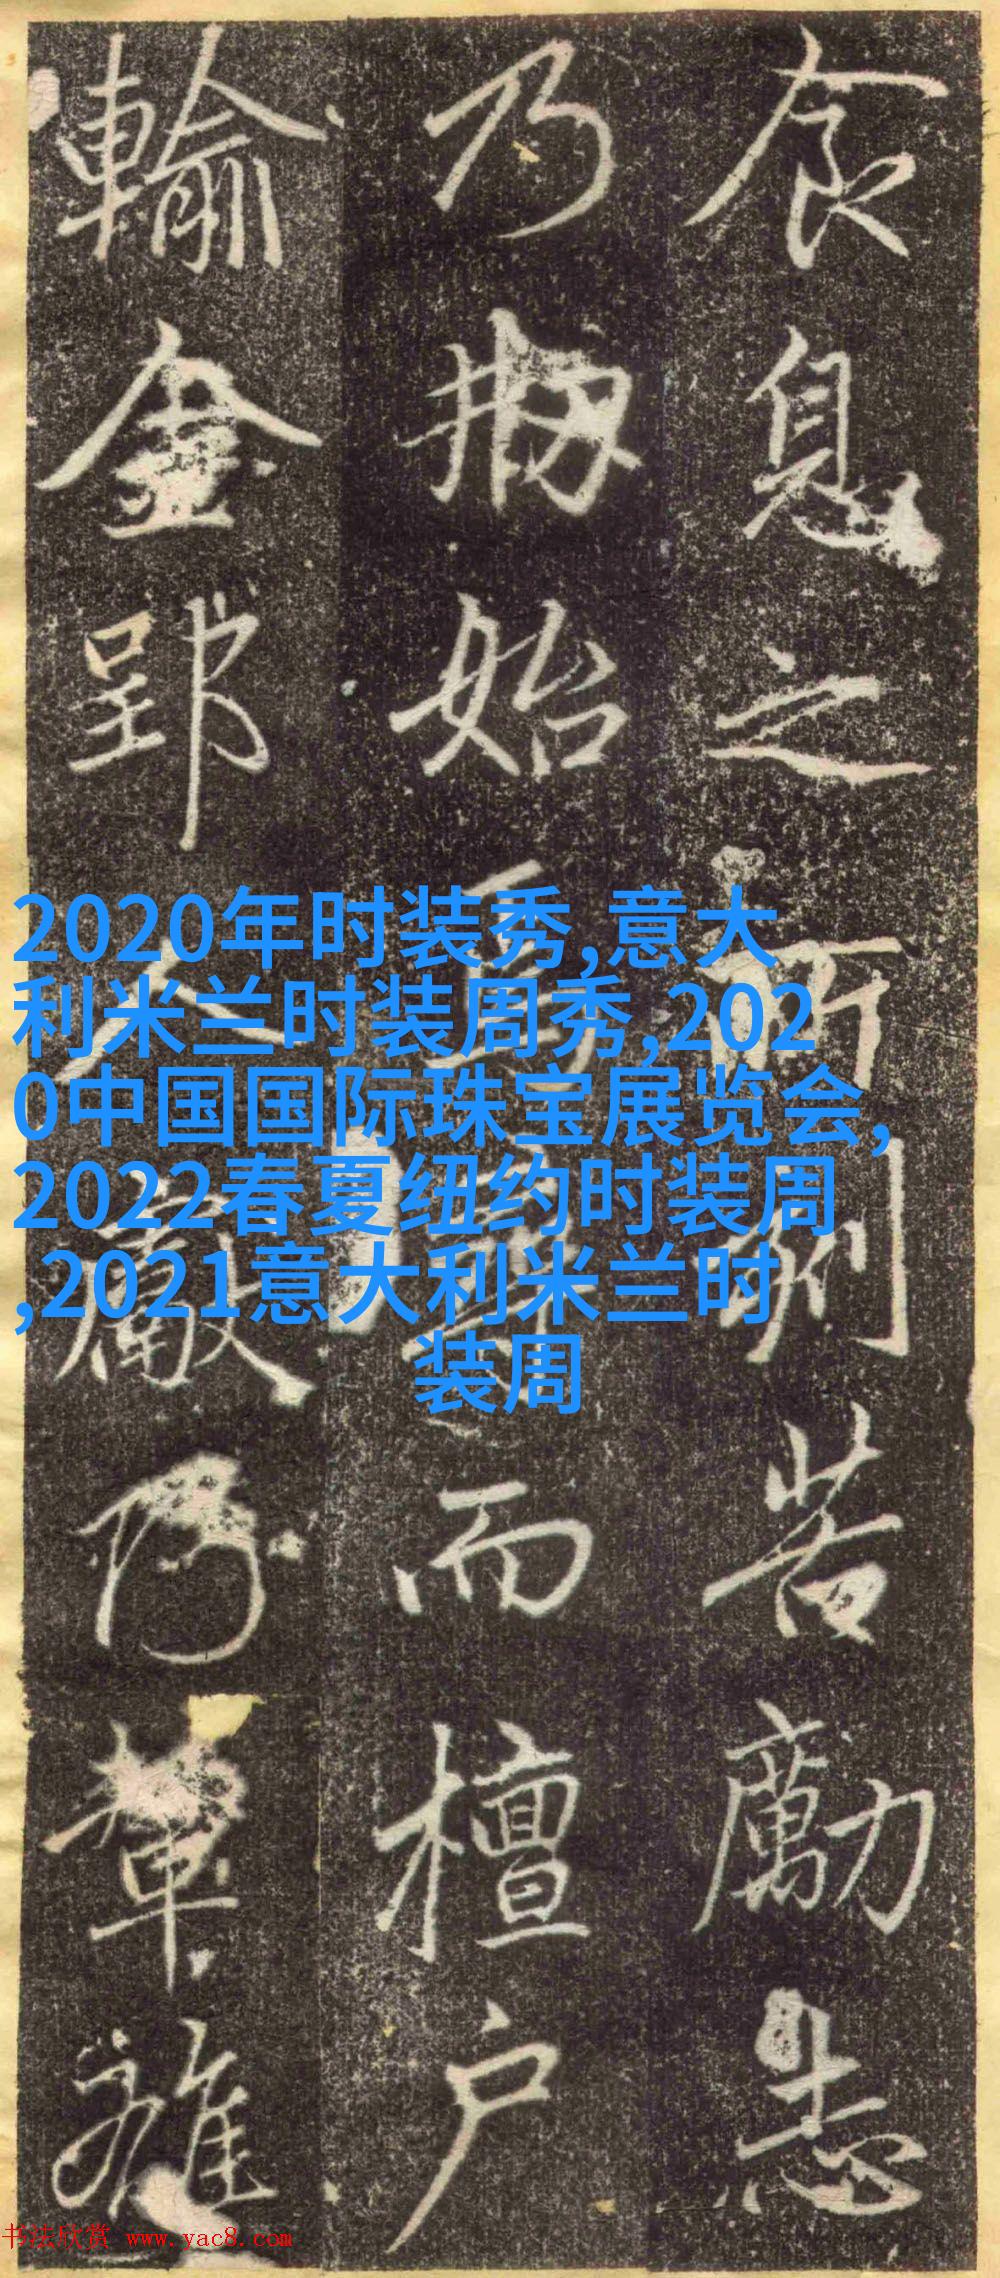 食息之所刷苦勵志
乃搦始
而檀户
輸金郢人
輩雜
2020年时装秀,意大
利米兰时装周秀,202
0中国国际珠宝展览会,
2022春夏纽约时装周
,2021意大利米兰时
装周
书法欣赏 www.yac8.com